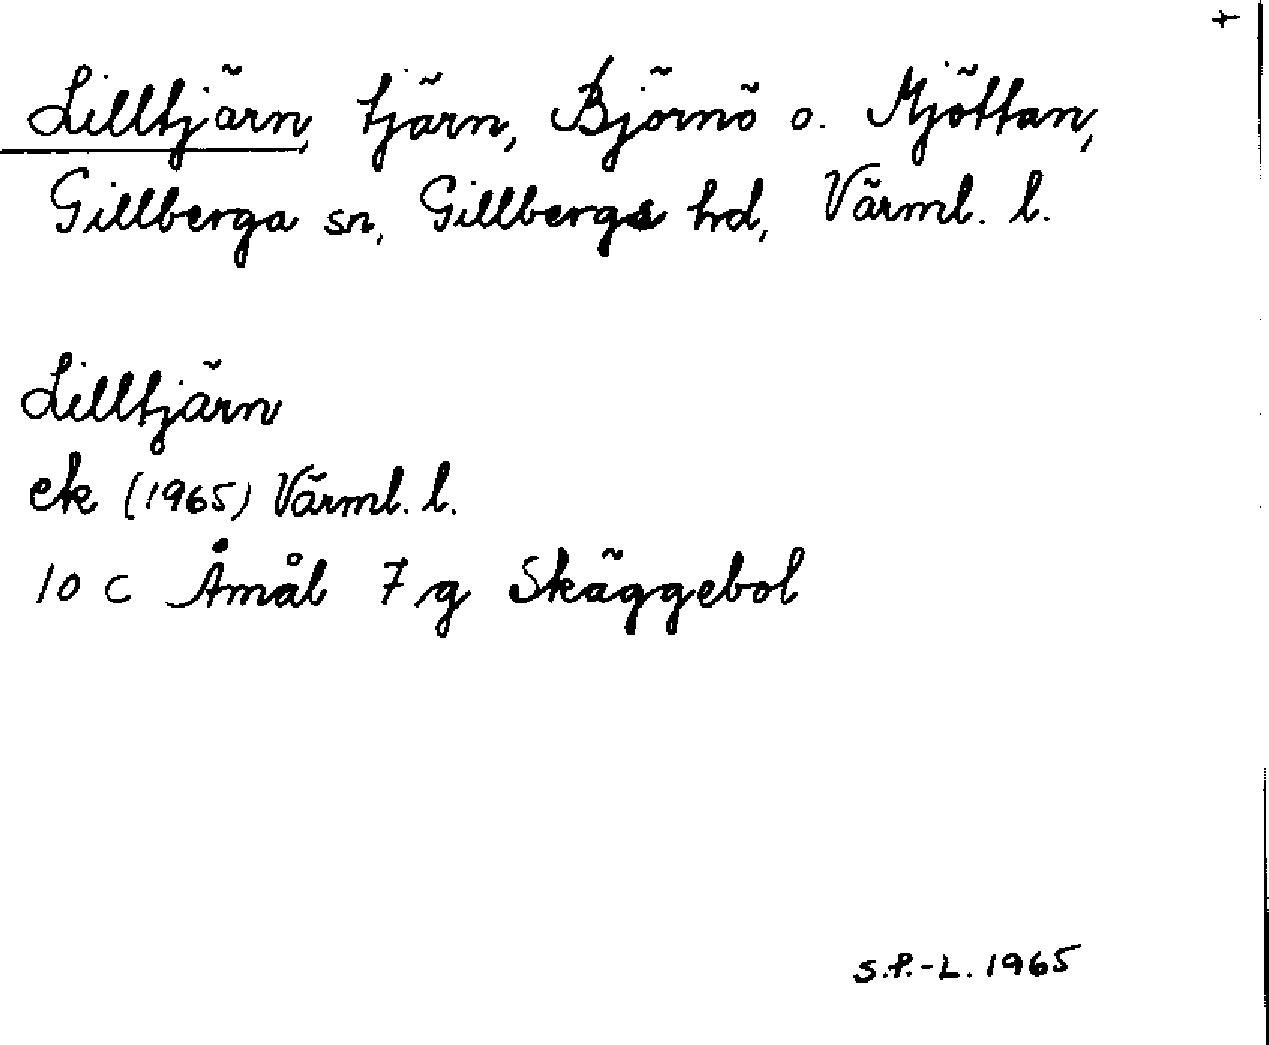 Lilltjärn, tjärn, Björnö o. Mjöttan,
Gillberga sn, Gillbergs hd, Värml. l.
Lilltjärn
ek (1965) Värml. l.
10 c Åmål 7 g Skäggebol
S.P.-L. 1965